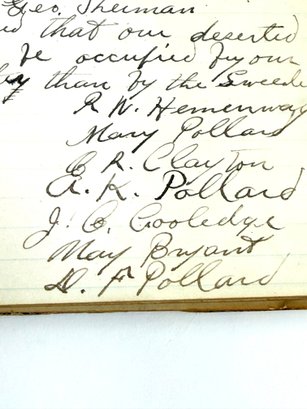 Geo. Sherman
that our deserted
be occupied by our
than by the Swede
R. W. Hemenway
Mary Pollard
C. R. Clayton
A. K. Pollard
J. C. Cooledge
May Bryant
D. F. Pollard